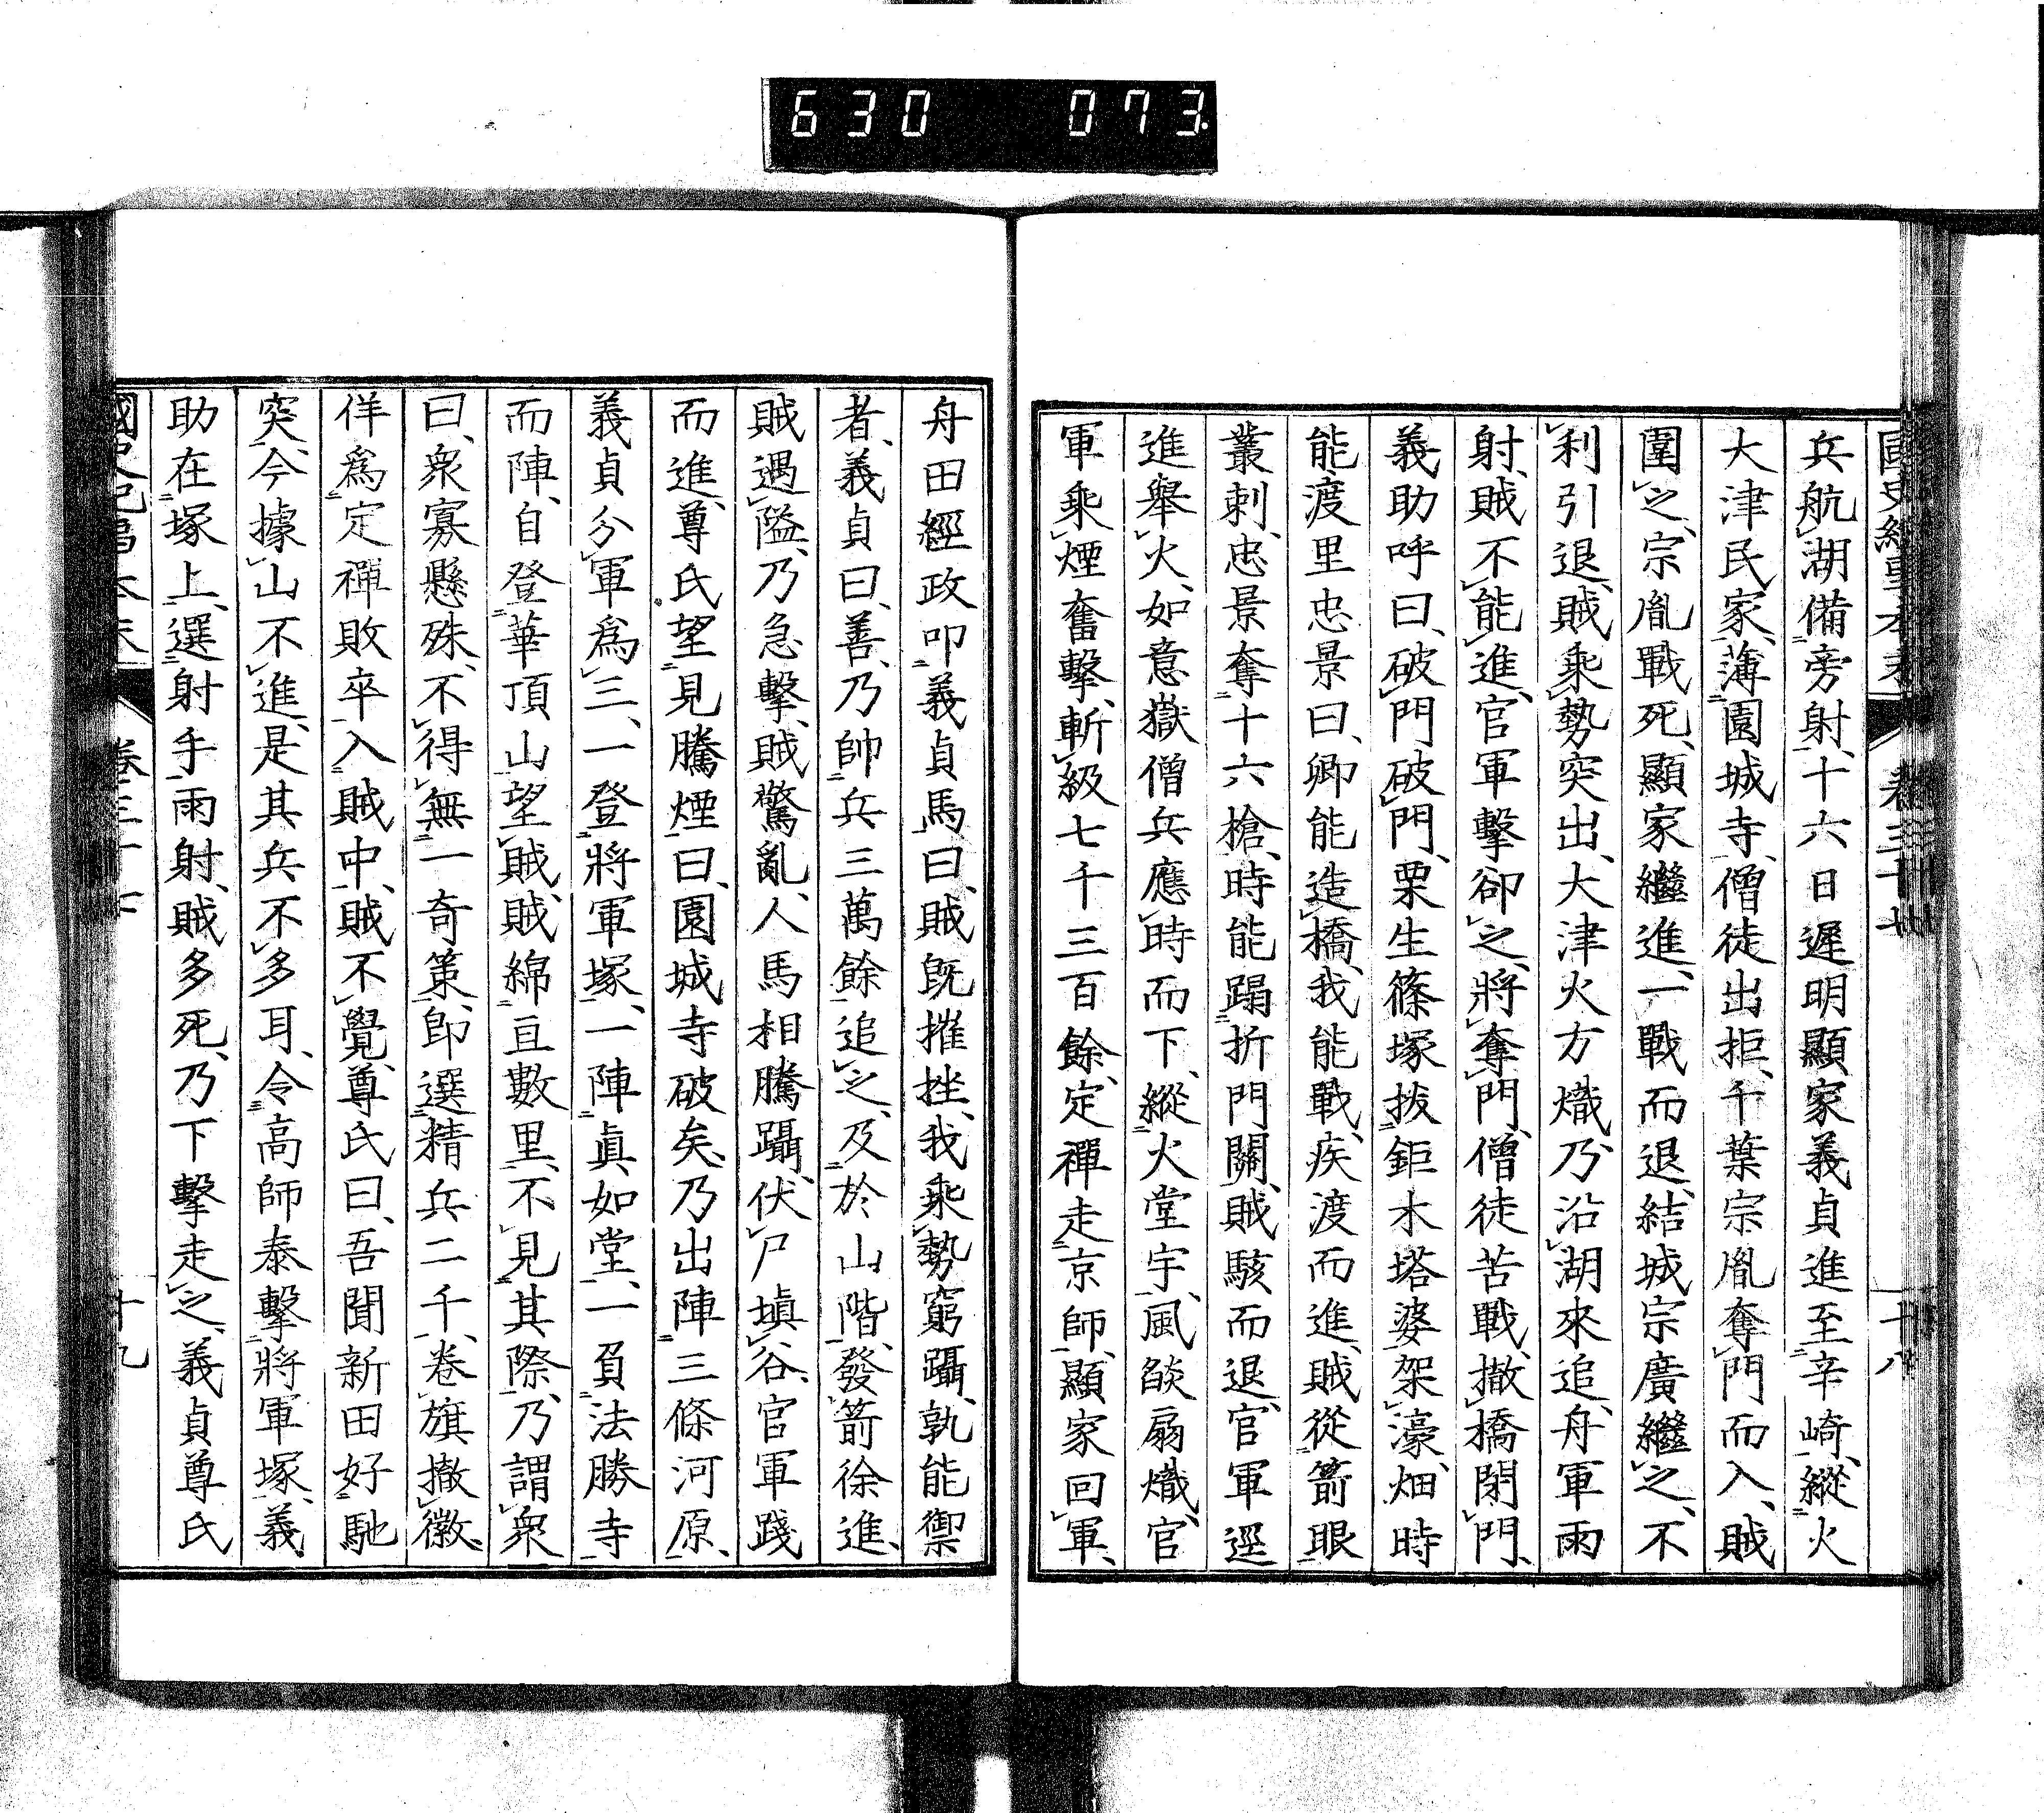 630 073.
國史紀事本末 卷三十七 十八
兵航湖備旁射、十六日遲明顯家義貞進至辛崎、縱火
大津民家、薄園城寺、僧徒出拒、千葉宗胤奪門而入、賊
圍之、宗胤戰死、顯家繼進、一戰而退、結城宗廣繼之、不
利引退、賊乘勢突出、大津火方熾、乃沿湖來追、舟軍雨
射、賊不能進、官軍擊卻之、將奪門、僧徒苦戰、撤橋閉門、
義助呼曰、破門破門、栗生篠塚拔鉅木塔婆架濠、畑時
能渡里忠景曰、卿能造橋、我能戰、疾渡而進、賊從箭眼
叢刺、忠景奪十六槍、時能蹋折門關、賊駭而退、官軍逕
進舉火、如意嶽僧兵應時而下、縱火堂宇、風燄扇熾、官
軍乘煙奮擊、斬級七千三百餘、定禪走京師、顯家回軍、
舟田經政叩義貞馬曰、賊旣摧挫、我乘勢窮躡、孰能禦
者、義貞曰、善、乃帥兵三萬餘追之、及於山階、發箭徐進、
賊遇隘、乃急擊、賊驚亂、人馬相騰躡、伏尸塡谷、官軍踐
而進、尊氏望見騰煙曰、園城寺破矣、乃出陣三條河原、
義貞分軍爲三、一登將軍塚、一陣眞如堂、一負法勝寺
而陣、自登華頂山望賊、賊綿亘數里、不見其際、乃謂衆
曰、衆寡懸殊、不得無一奇策、卽選精兵二千、卷旗撤徽、
佯爲定禪敗卒入賊中、賊不覺、尊氏曰、吾聞新田好馳
突、今據山不進、是其兵不多耳、令高師泰擊將軍塚、義
助在塚上、選射手雨射、賊多死、乃下擊走之、義貞尊氏
國史紀事本末 卷三十七 十九